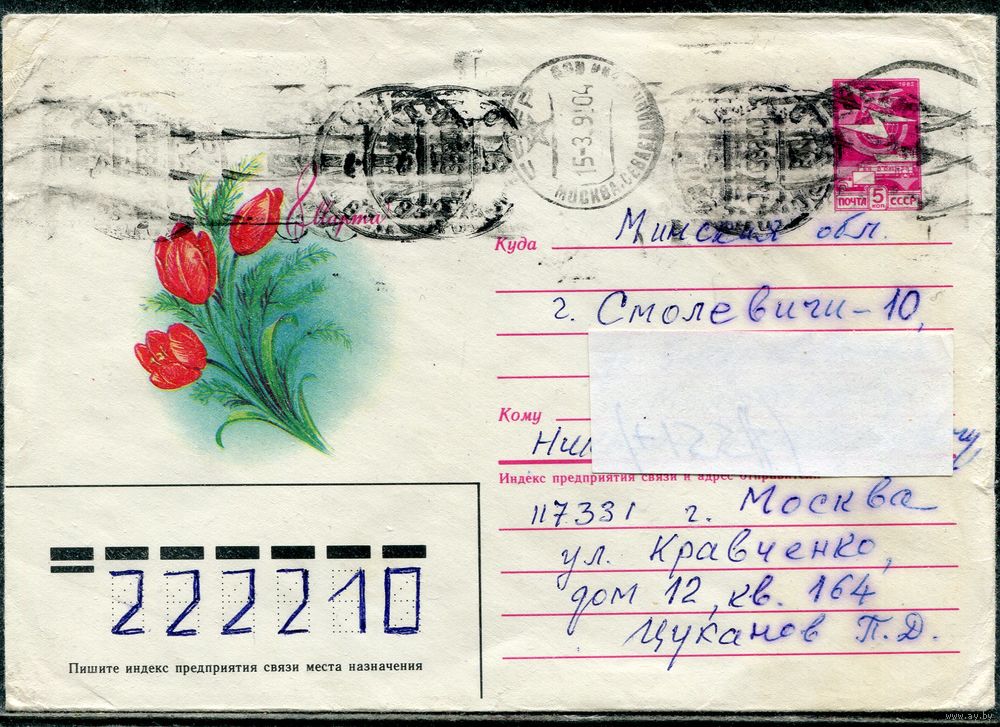 15-3.9504
МОСКВА
1982
ПОЧТА 5 КОП СССР
8 Марта
Куда Минская обл.
г. Смолевичи-10,
Кому
Индекс предприятия связи и адрес
117331 г. Москва
ул. Кравченко,
дом 12, кв. 164
Цуканов П.Д.
222210
Пишите индекс предприятия связи места назначения
www.ay.by